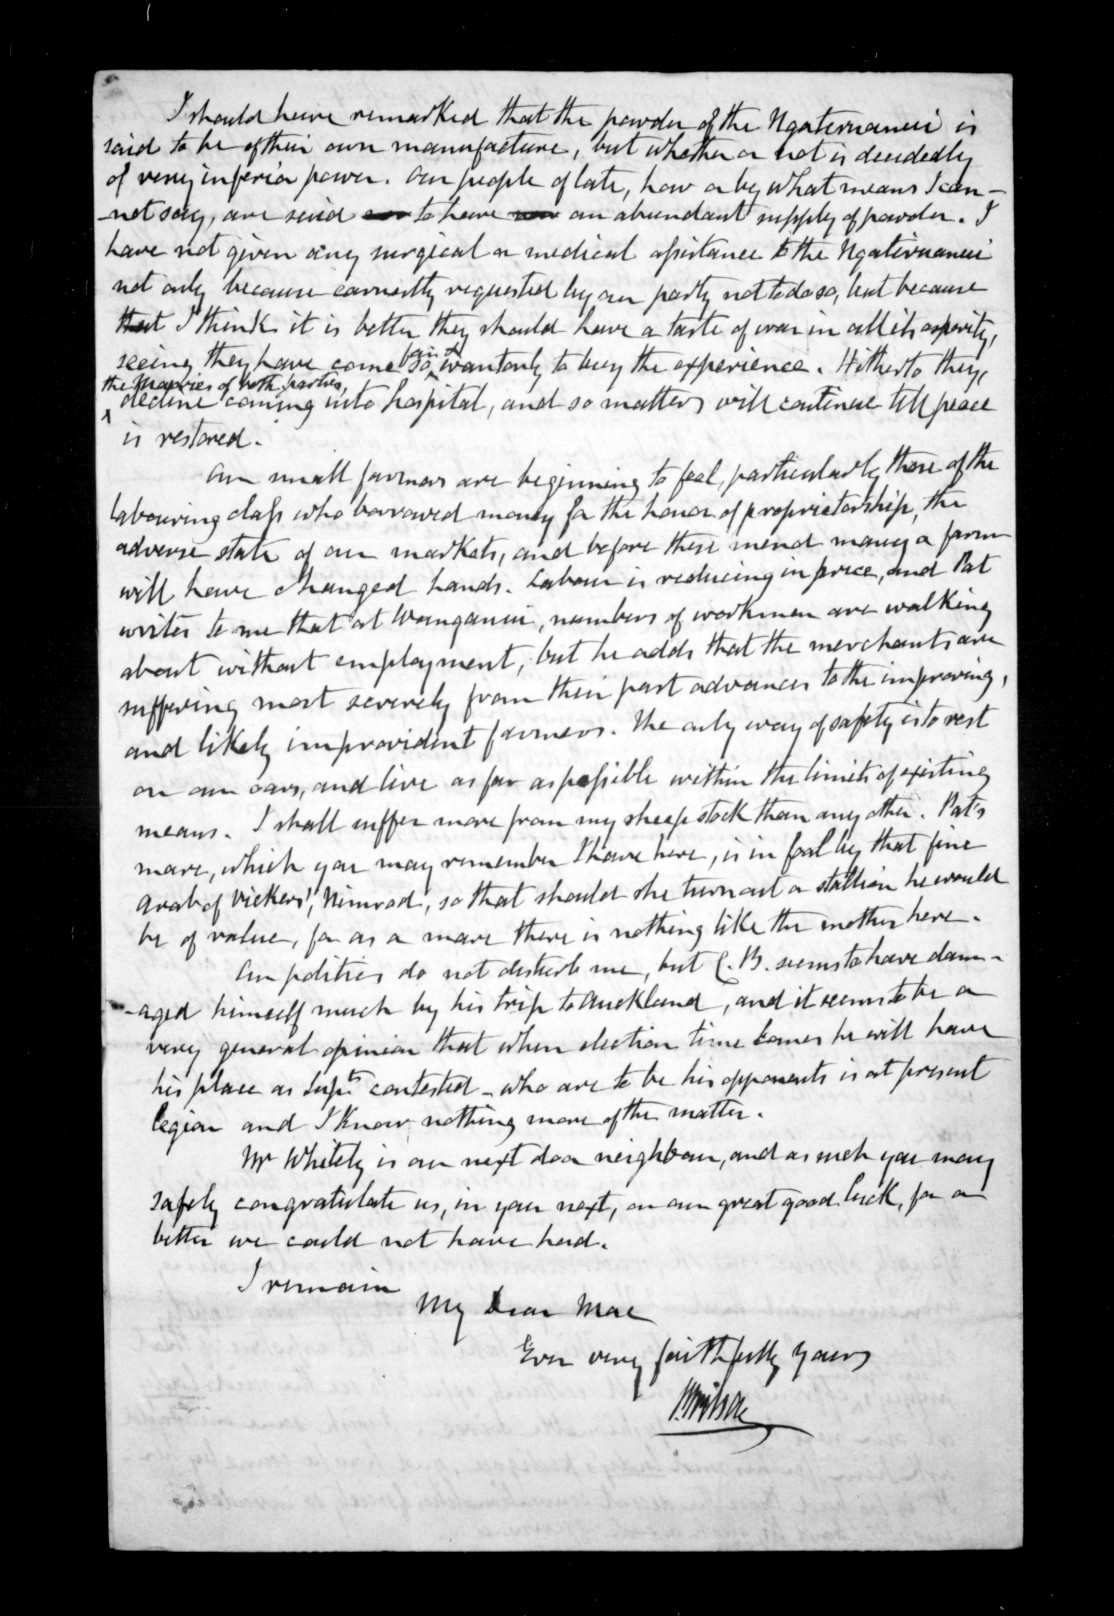 I should have remarked that the powder of the Ngateruanui is
said to be of their own manufacture, but whether or not is decidedly
of very inferior power. Our people of late, how or by what means I can-
-not say, are said to have an abundant supply of powder. I
have not given any surgical or medical assistance to the Ngatiruanui
not only because earnestly requested by our party not to do so, but because
that I think it is better they should have a taste of war in all its asperity,
seeing they have come so wantonly to buy the experience. Hitherto they,
the Maories of both parties,
decline coming into hospital, and so matters will continue till peace
is restored.
Our small farmers are beginning to feel, particularly those of the
labouring class who borrowed money for the honor of proprietorship, the
adverse state of our markets, and before these mend many a farm
will have changed hands. Labour is reducing in price, and Pat
writes to me that at Wanganui, numbers of workmen are walking
about without employment, but he adds that the merchants are
suffering most severely from their past advances to the improving,
and likely improvident farmers. The only way of safety is to rest
on our oars, and live as far as possible within the limits of existing
means. I shall suffer more from my sheep stock than any other. Pat's
mare, which you may remember I have here, is in foal by that fine
arab of Vickers', Nimrod, so that should she turn out a stallion he would
be of value, for as a mare there is nothing like the mother here.
Our politics do not disturb me, but C. B. seems to have dam-
-aged himself much by his trip to Auckland, and it seems to be a
very general opinion that when election time comes he will have
his place as Supt contested - who are to be his opponents is at present
legion and I know nothing more of the matter.
Mr Whitely is our next door neighbour, and as such you may
safely congratulate us, in your next, on our great good luck, for a
better we could not have had.
I remain
My Dear Mac
Ever very faithfully yours
P. Wilson